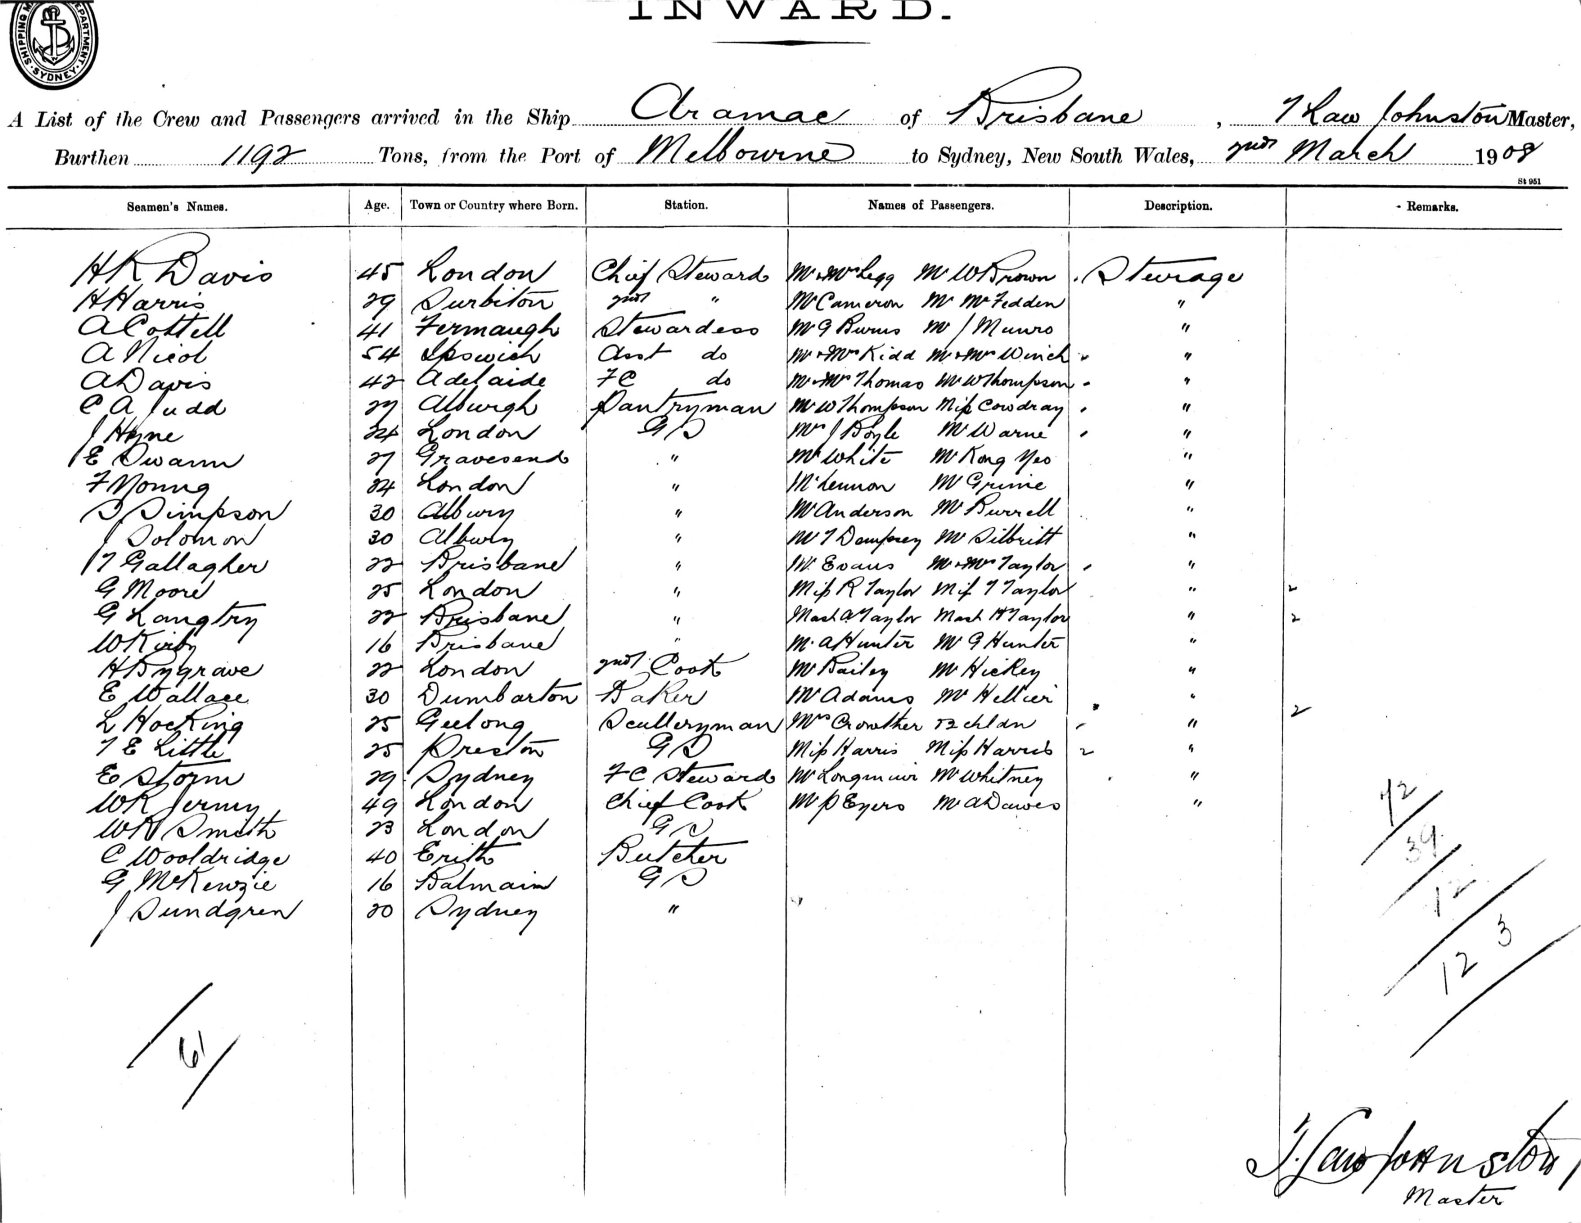 INWARD.
SHIPPING M DEPARTMENT. SYDNEY
A List of the Crew and Passengers arrived in the Ship Aramac of Brisbane, T Law Johnston Master,
Burthen 1192 Tons, from the Port of Melbourne to Sydney, New South Wales, 2nd March 1908
St 951
Seamen's Names. Age. Town or Country where Born. Station. Names of Passengers. Description. Remarks.
H R Davis 45 London Chief Steward Mr & Mrs Legg Mr W Brown Steerage
H Harris 29 Surbiton 2nd " Mr Cameron Mr McFedden "
A Cottell 41 Fermaugh Stewardess Mr G Burns Mr J Munro "
A Nicol 54 Ipswich Asst do Mr & Mrs Kidd Mr & Mrs Winch "
A Davis 42 Adelaide FC do Mr & Mrs Thomas Mr W Thompson "
C A Judd 27 Alburgh Pantryman Mr W Thompson Miss Cowdray "
J Hyne 24 London G S Mrs J Boyle Mr Warne "
E Swann 27 Gravesend " Mr White Mr Kong Yeo "
F Young 24 London " McLennon Mr Grime "
S Simpson 30 Albury " Mr Anderson Mr Burrell "
J Solomon 30 Albury " Mr T Dempsey Mr Silbritt "
T Gallagher 22 Brisbane " Mr Evans Mr & Mrs Taylor "
G Moore 25 London " Miss R Taylor Miss T Taylor " 2
G Langtry 22 Brisbane " Mast A Taylor Mast H Taylor " 2
W Kirby 16 Brisbane " Mr A Hunter Mr G Hunter "
H Bygrave 22 London 2nd Cook Mr Bailey Mr Hickey "
E Wallace 30 Dumbarton Baker Mr Adams Mr Hellier "
L Hocking 25 Geelong Sculleryman Mrs Crowther & 2 chldn " 2
T E Little 25 Preston G S Miss Harris Miss Harris 2 "
E Storm 29 Sydney FC Steward Mr Longmuir Mr Whitney "
W R Jermy 49 London Chief Cook Mr P Eyers Mr A Dawes "
W H Smith 23 London G S
C Wooldridge 40 Erith Butcher
G McKenzie 16 Balmain G S
J Sundgren 20 Sydney "
72
39
12
12 3
61
T. Law Johnston
Master